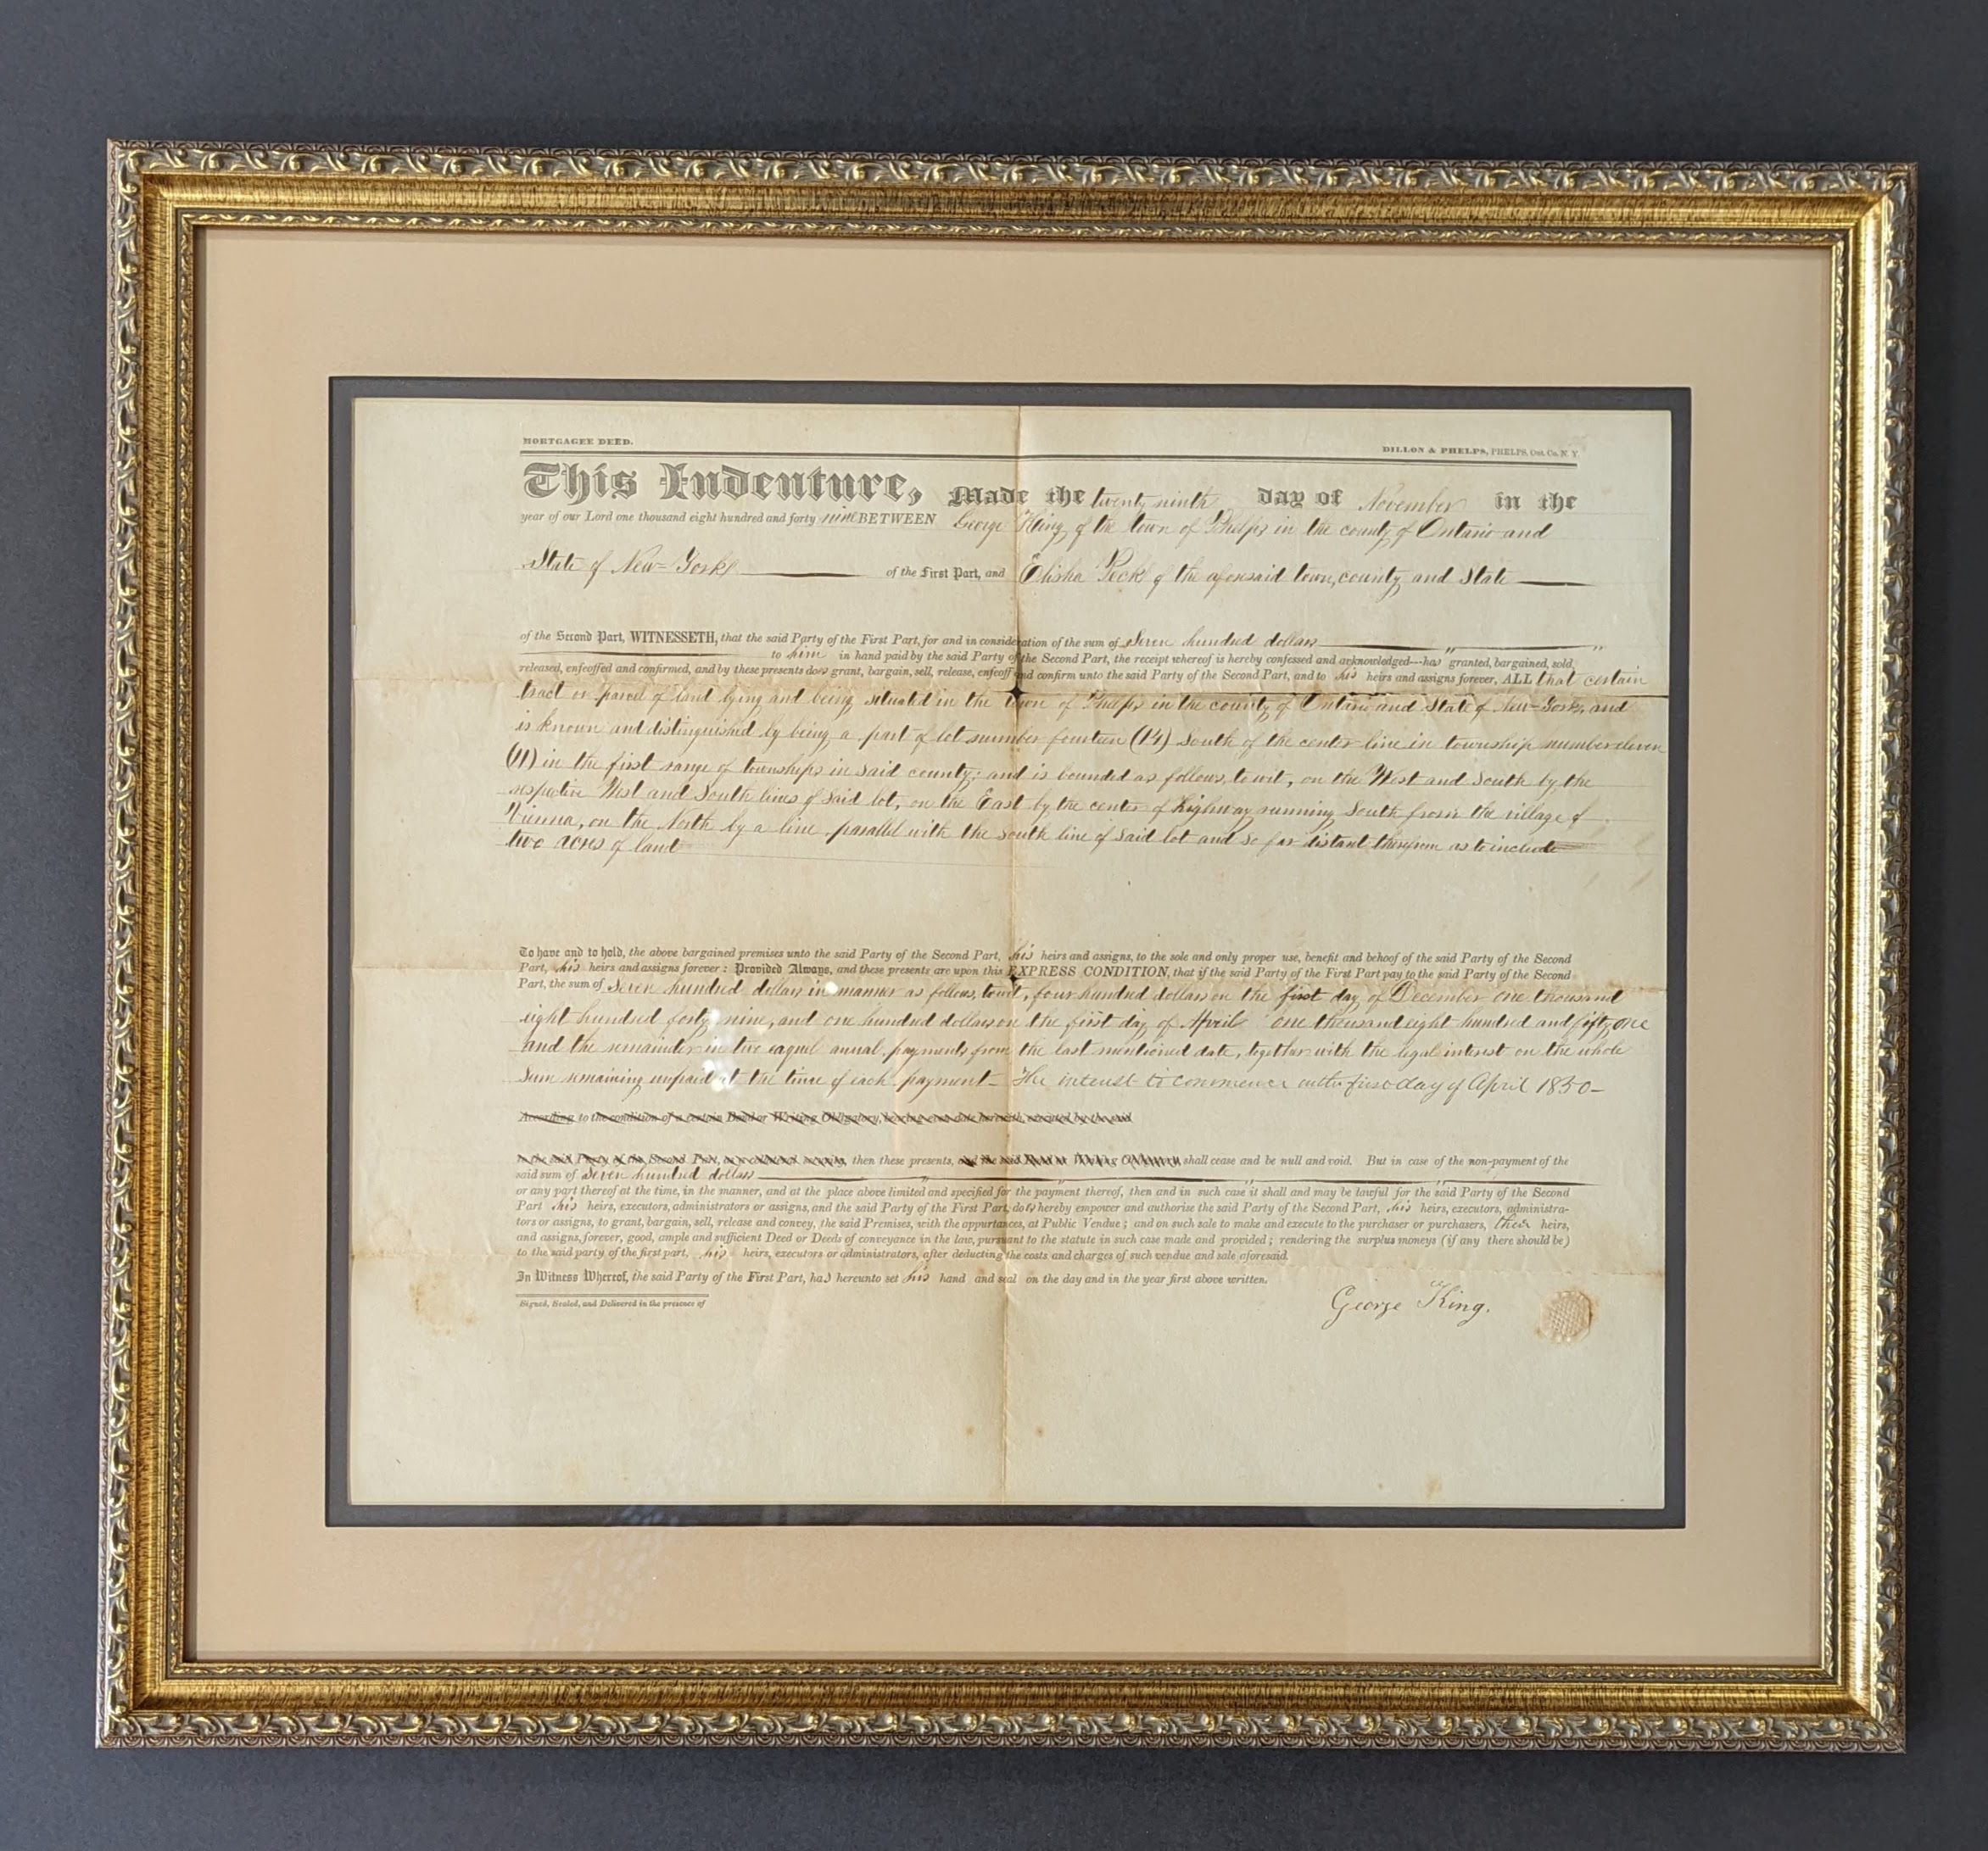 MORTGAGEE DEED.
DILLON & PHELPS, PHELPS, Ont. Co. N. Y.
This Indenture, Made the twenty ninth day of November in the
year of our Lord one thousand eight hundred and forty nine BETWEEN George King of the town of Phelps in the county of Ontario and
State of New-York of the First Part, and Elisha Peck of the aforesaid town, county and State
of the Second Part, WITNESSETH, that the said Party of the First Part, for and in consideration of the sum of Seven hundred dollars
to him in hand paid by the said Party of the Second Part, the receipt whereof is hereby confessed and acknowledged---has granted, bargained, sold,
released, enfeoffed and confirmed, and by these presents does grant, bargain, sell, release, enfeoff and confirm unto the said Party of the Second Part, and to his heirs and assigns forever, ALL that certain
tract or parcel of land lying and being situated in the town of Phelps in the county of Ontario and State of New-York, and
is known and distinguished by being a part of lot number fourteen (14) South of the center line in township number eleven
(11) in the first range of townships in said county; and is bounded as follows, to wit, on the West and South by the
respective West and South lines of said lot, on the East by the center of highway running South from the village of
Vienna, on the North by a line parallel with the south line of said lot and so far distant therefrom as to include
two acres of land
To have and to hold, the above bargained premises unto the said Party of the Second Part, his heirs and assigns, to the sole and only proper use, benefit and behoof of the said Party of the Second
Part, his heirs and assigns forever: Provided Always, and these presents are upon this EXPRESS CONDITION, that if the said Party of the First Part pay to the said Party of the Second
Part, the sum of Seven hundred dollars in manner as follows, to wit, four hundred dollars on the first day of December one thousand
eight hundred forty nine, and one hundred dollars on the first day of April one thousand eight hundred and fifty one
and the remainder in two eaquel annual payments from the last mentioned date, together with the legal interest on the whole
sum remaining unpaid at the time of each payment - The interest to commence on the first day of April 1850-
According to the condition of a certain Bond or Writing Obligatory, bearing even date herewith, executed by the said
to the said Party of the Second Part, as a collateral security, then these presents, and the said Bond or Writing Obligatory, shall cease and be null and void. But in case of the non-payment of the
said sum of Seven hundred dollars
or any part thereof at the time, in the manner, and at the place above limited and specified for the payment thereof, then and in such case it shall and may be lawful for the said Party of the Second
Part his heirs, executors, administrators or assigns, and the said Party of the First Part, does hereby empower and authorise the said Party of the Second Part, his heirs, executors, administra-
tors or assigns, to grant, bargain, sell, release and convey, the said Premises, with the appurtances, at Public Vendue; and on such sale to make and execute to the purchaser or purchasers, their heirs,
and assigns, forever, good, ample and sufficient Deed or Deeds of conveyance in the law, pursuant to the statute in such case made and provided; rendering the surplus moneys (if any there should be)
to the said party of the first part, his heirs, executors or administrators, after deducting the costs and charges of such vendue and sale aforesaid.
In Witness Whereof, the said Party of the First Part, has hereunto set his hand and seal on the day and in the year first above written.
Signed, Sealed, and Delivered in the presence of
George King.